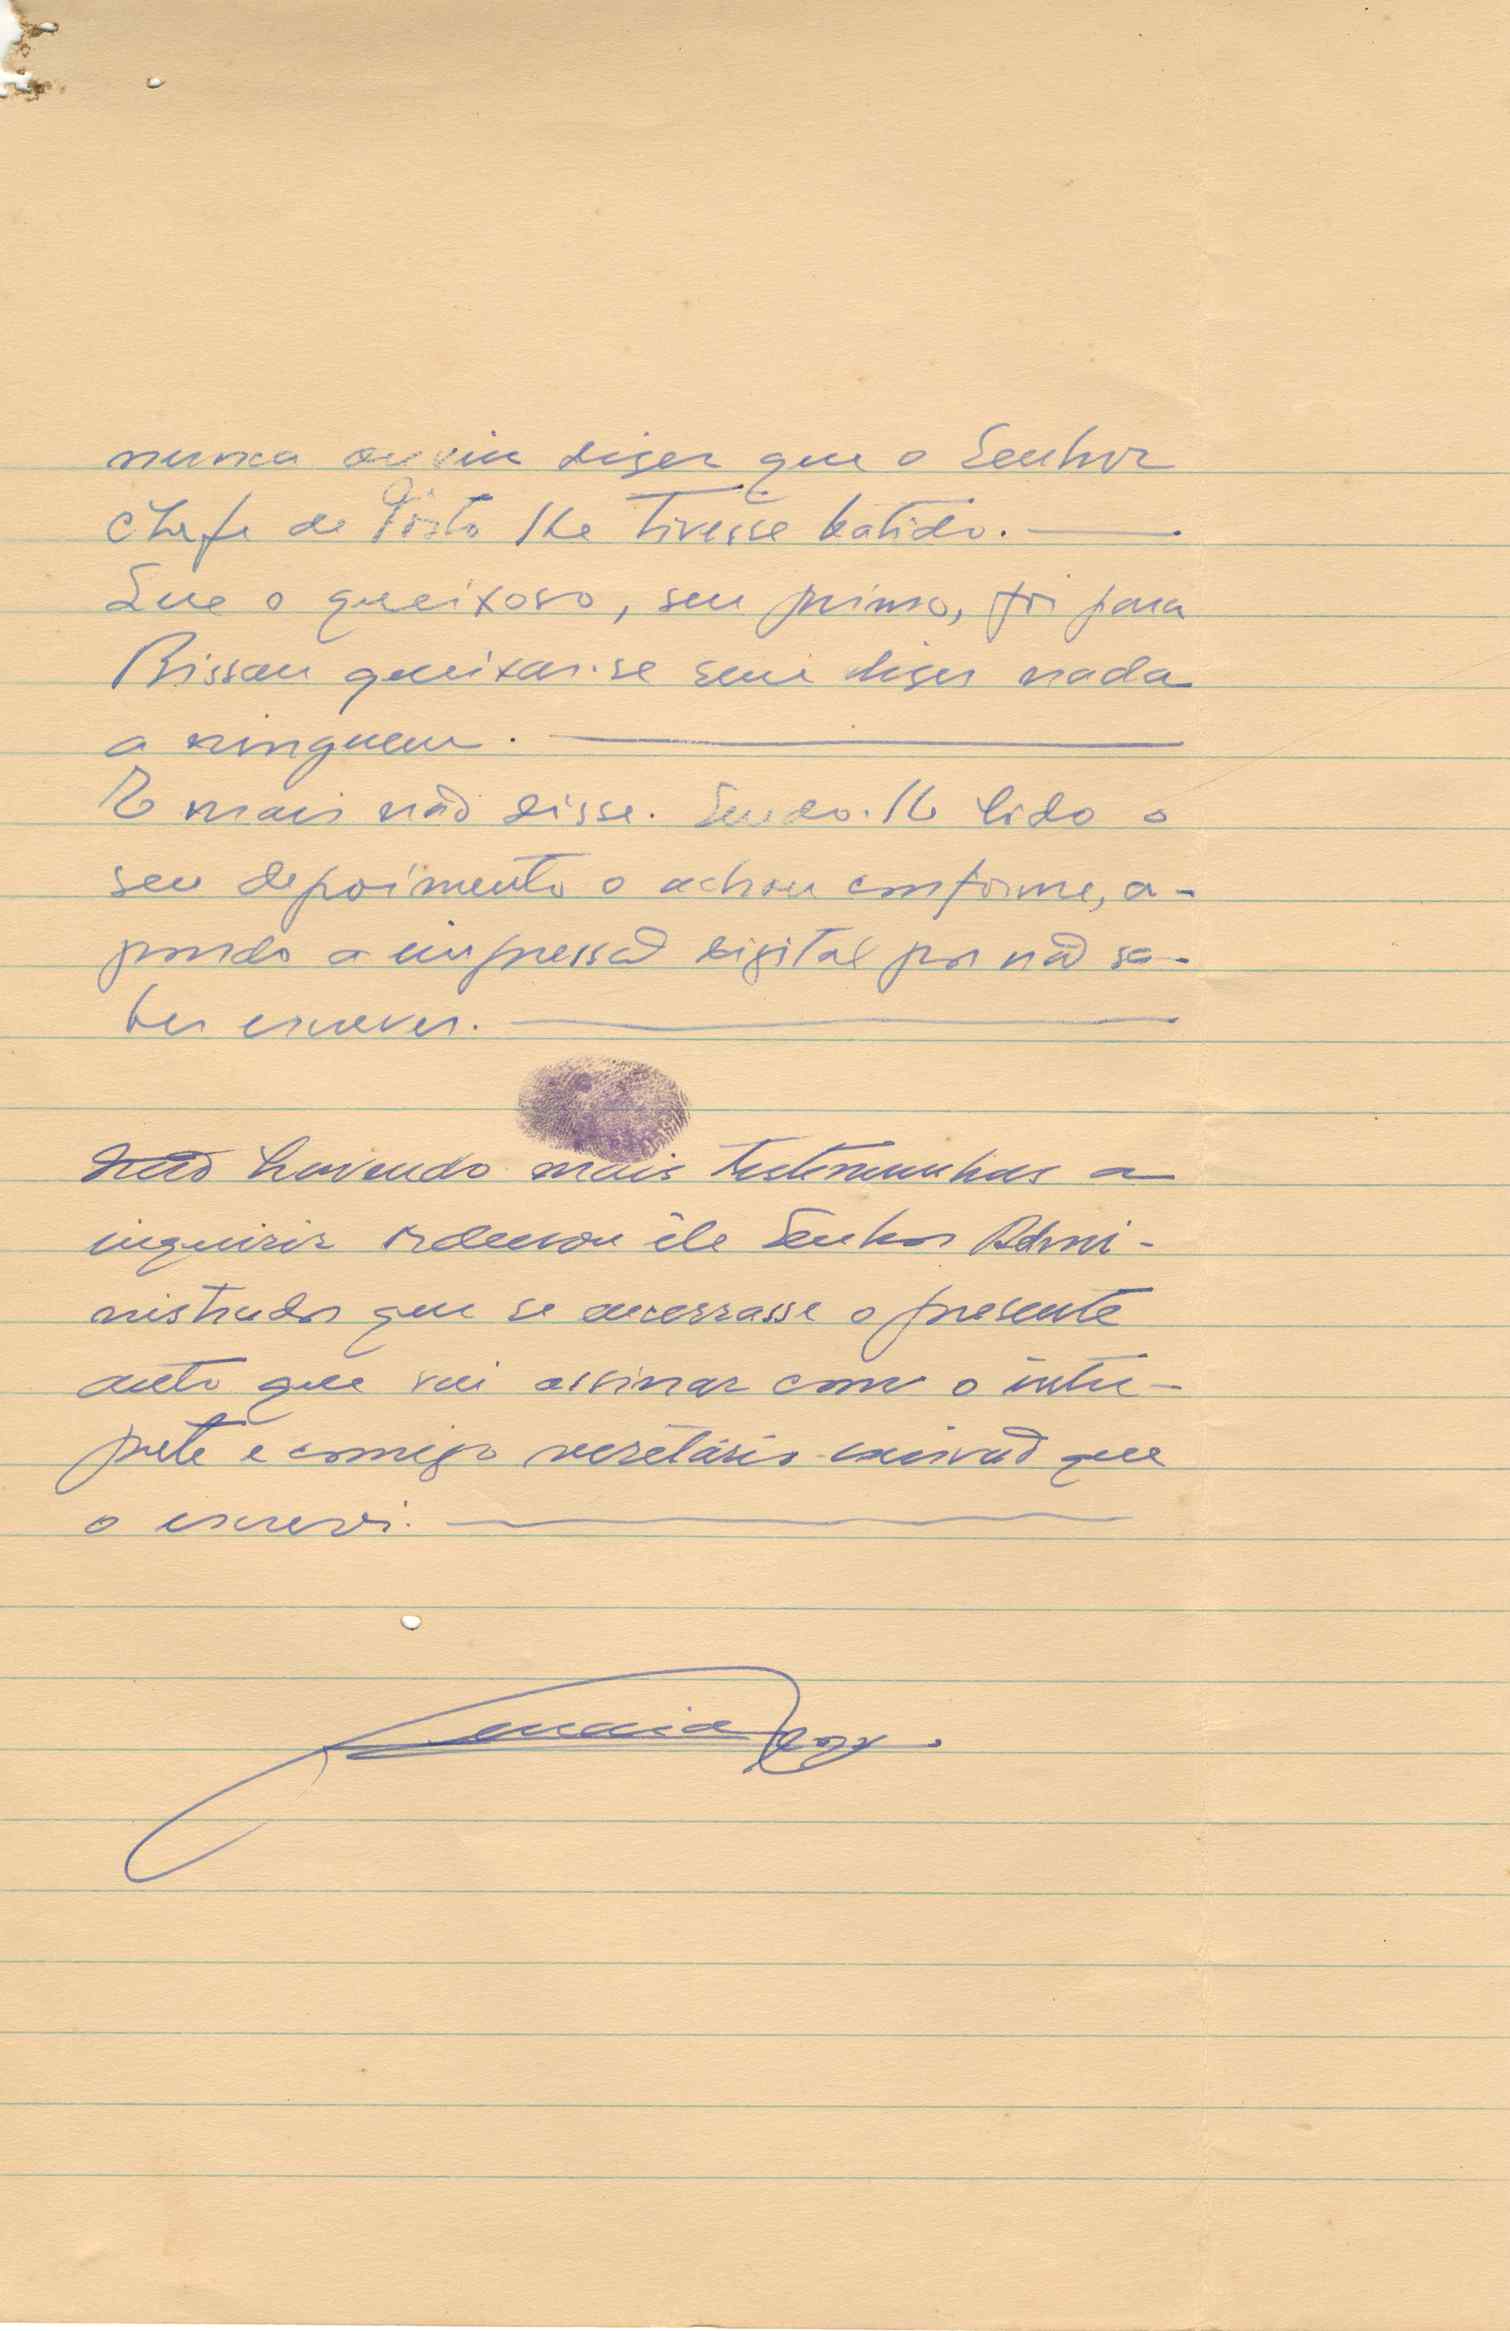 nunca ouviu diser que o Senhor
Chefe de Pôsto lhe tivesse batido.
Que o queixoso, seu primo, foi para
Bissau queixar-se sem diser nada
a ninguem.
E mais não disse. Sendo-lhe lido o
seu depoimento o achou conforme, a-
pondo a impressão digital por não sa-
ber escrever.
Não havendo mais testemunhas a
inquirir ordenou êle Senhor Admi-
nistrador que se encerrasse o presente
auto que vai assinar com o intér-
prete e comigo secretário escrivão que
o escrevi.